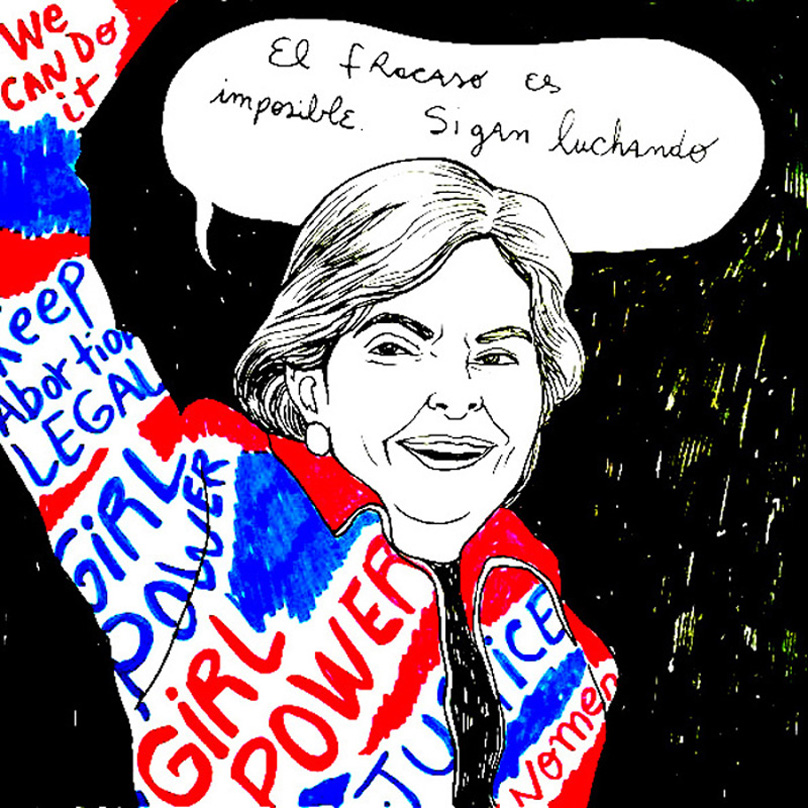 We
CAN DO
it
El fracaso es
imposible. Sigan luchando
Keep
Abortion
LEGAL
GiRL
POWER
GiRL
POWER
JUSTICE
Nomen